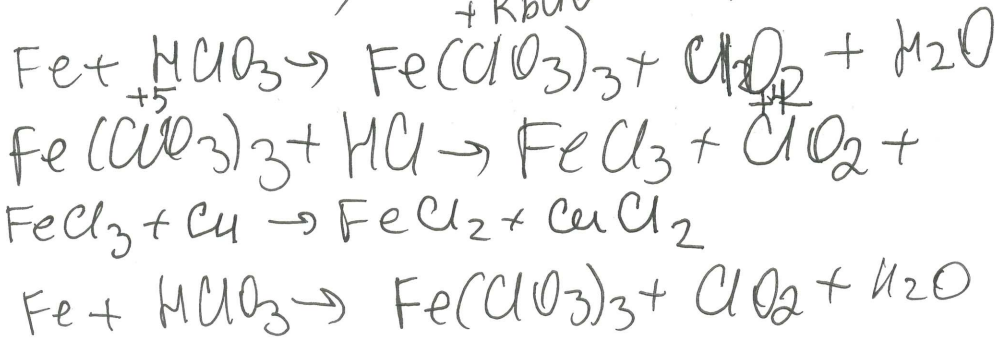 Fe + HClO3 → Fe(ClO3)3 + ClO2 + H2O
+5 +4
Fe(ClO3)3 + HCl → FeCl3 + ClO2 +
FeCl3 + Cu → FeCl2 + CuCl2
Fe + HClO3 → Fe(ClO3)3 + ClO2 + H2O